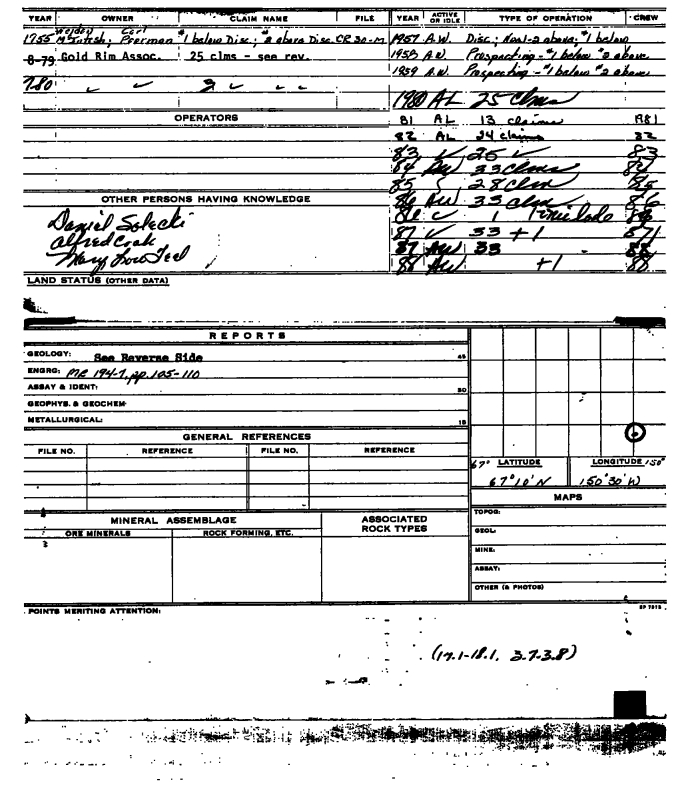 YEAR OWNER CLAIM NAME FILE YEAR ACTIVE OR IDLE TYPE OF OPERATION CREW
Weldon Carl
1955 McIntosh; #1 below Disc; #2 above Disc. CR 30-M 1957 A.W. Disc; #2 above; #1 below
8-79 Gold Rim Assoc. 25 clms - see rev. 1958 A.W. Prospecting - #1 below #2 above.
1959 A.W. Prospecting - #1 below #2 above
7-80 1980 AL 25 Clms
OPERATORS 81 AL 13 claims A81
82 AL 24 claims 82
83 ✓ 25 ✓ 83
84 AW 33 clms 84
85 28 clm 85
OTHER PERSONS HAVING KNOWLEDGE 86 AW 33 clm 86
Daniel Solecki 86 1 86
Alfred Cook 87 ✓ 33 + 1 87
Mary Lou Teel 87 AW 33 88
88 AW +1 88
LAND STATUS (OTHER DATA)
REPORTS
GEOLOGY: See Reverse Side 45
ENGRG: MR 194-7, pp. 105-110
ASSAY & IDENT: 30
GEOPHYS. & GEOCHEM:
METALLURGICAL: 15
GENERAL REFERENCES
FILE NO. REFERENCE FILE NO. REFERENCE
67° LATITUDE LONGITUDE 150°
67°10'N 150°30'W
MAPS
MINERAL ASSEMBLAGE ASSOCIATED ROCK TYPES TOPOG:
ORE MINERALS ROCK FORMING, ETC. GEOL:
MINE:
ASSAY:
OTHER (& PHOTOS)
POINTS MERITING ATTENTION:
(17.1-18.1, 3.7-3.8)